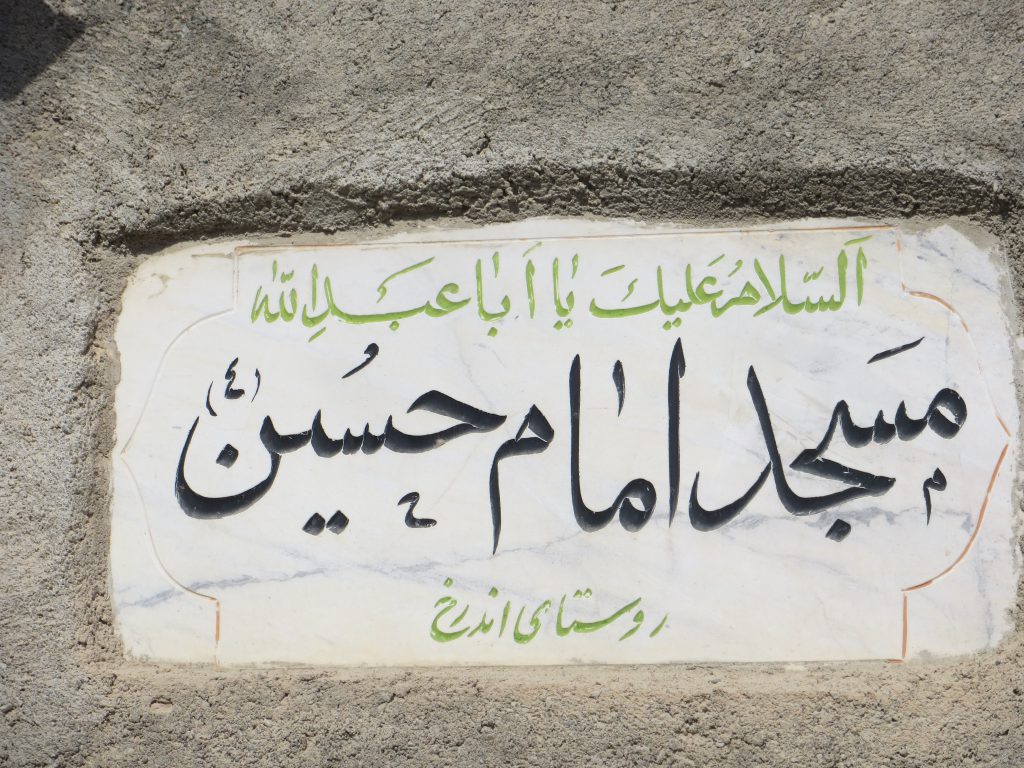 اَلسّلامُ عَلیکَ یا اَبا عَبدِالله
مسجد امام حسین (ع)
روستای اندرخ